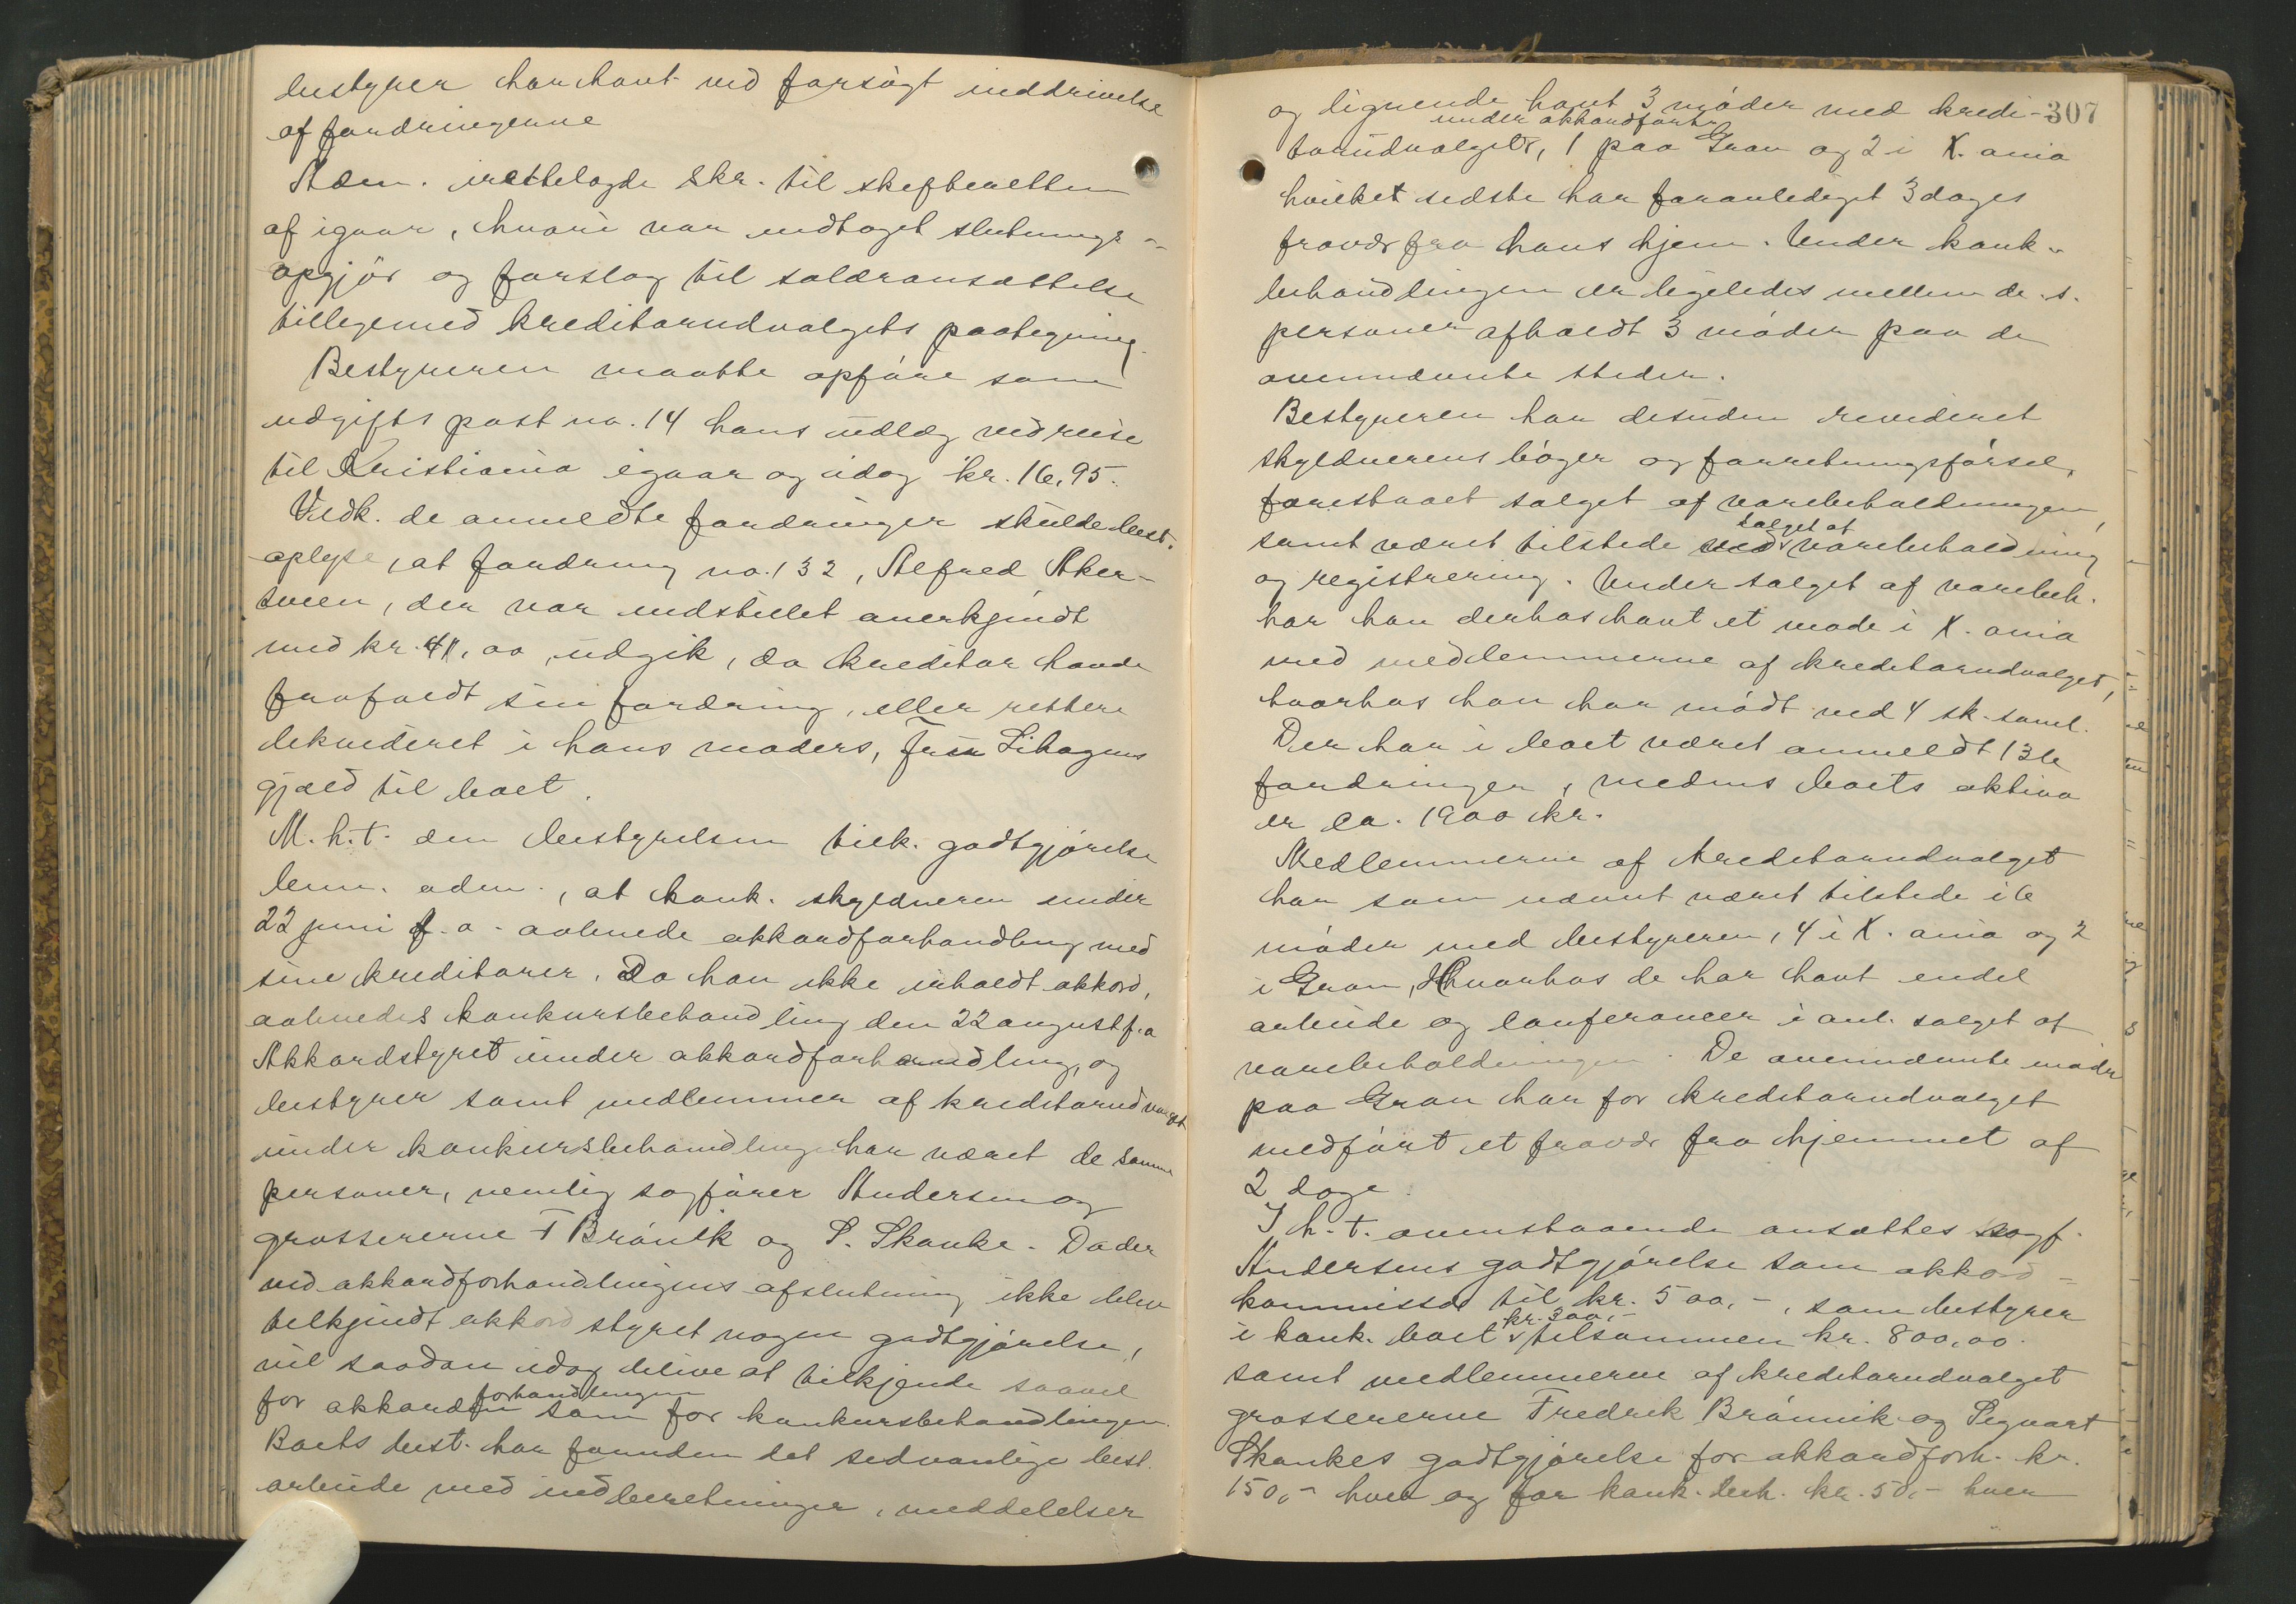 bestyrer har havt ved forsøgt inddrivelse
af fordringerne
Adm. irettelagde skr. til skifteretten
af igaar, hvori var indtaget slutnings-
opgjør og forslag til salæransættelse
tilligemed kreditorudvalgets paategning.
Bestyreren maatte opføre som
udgifts post no. 14 hans udlæg ved reise
til Kristiania igaar og idag kr. 16,95.
Vedk. de anmeldte fordringer skulde best.
oplyse, at fordring no. 132, Alfred Aker-
sveen, der var indstillet anerkjendt
med kr. 41,00, udgik, da kreditor havde
frafaldt sin fordring, eller rettere
likvideret i hans moders, Fru Lihagens
gjæld til boet.
M.h.t. den bestyrelsen tilk. godtgjørelse
bem. adm., at konk. skyldneren under
22 juni f.a. aabnede akkordforhandling med
sine kreditorer. Da han ikke erholdt akkord,
aabnedes konkursbehandling den 22 august f.a
Akkordstyret under akkordforhandling, og
bestyrer samt medlemmer af kreditorudvalget
under konkursbehandling har været de samme
personer, nemlig sagfører Andersen og
grossererne F Brønik og S. Skanke. Da der
ved akkordforhandlingens afslutning ikke blev
tilkjendt akkordstyret nogen godtgjørelse,
vil saadan idag blive at tilkjende saavel
for akkordforhandlingen som for konkursbehandlingen.
Boets best. har foruden det sedvanlige best.
arbeide med indberetninger, meddelelser
307
og lignende havt 3 møder med kredi-
torudvalget under akkordforh., 1 paa Gran og 2 i X.ania
hvilket sidste har foranlediget 3 dages
fravær fra hans hjem. Under konk.
behandlingen er ligeledes mellem de s.
personer afholdt 3 møder paa de
ovennævnte steder.
Bestyreren har desuden revideret
skyldnerens bøger og forretningsførsel,
forestaaet salget af varebeholdningen,
samt været tilstede ved salget af varebeholdning
og registrering. Under salget af varebeh.
har han derhos havt et møde i X.ania
med medlemmerne af kreditorudvalget,
hvorhos han har mødt ved 4 sk.saml.
Der har i boet været anmeldt 136
fordringer, medens boets aktiva
er ca. 1900 kr.
Medlemmerne af kreditorudvalget
har som nævnt været tilstede i 6
møder med bestyreren, 4 i X.ania og 2
i Gran, Hvorhos de har havt endel
arbeide og konferancer i anl. salget af
varebeholdningen. De ovennævnte møder
paa Gran har for kreditorudvalget
medført et fravær fra hjemmet af
2 dage.
I h.t. ovenstaaende ansættes sagf.
Andersens godtgjørelse som akkord-
kommissær til kr. 500,-, som bestyrer
i konk. boet kr. 300,- tilsammen kr. 800,00.
samt medlemmerne af kreditorudvalget
grossererne Fredrik Brønnik og Sigvart
Skankes godtgjørelse for akkordforh. kr.
150,- hver og for konk. beh. kr. 50,- hver